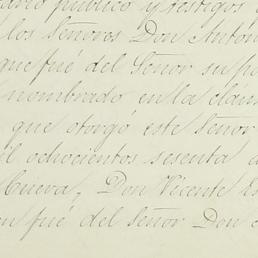 ario público y testigos
los Señores Don Antón
que fué del Señor su po
nombrado en la cláu
que otorgó este Señor
il ochocientos sesenta
Cueva, Don Vicente
en fué del Señor Don